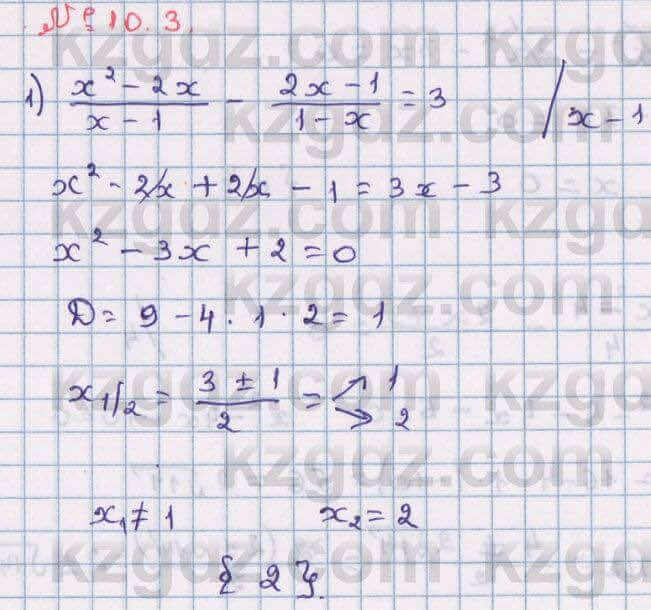 № 10.3.
1) (x² - 2x)/(x - 1) - (2x - 1)/(1 - x) = 3 / x - 1
x² - 2x + 2x - 1 = 3x - 3
x² - 3x + 2 = 0
D = 9 - 4 · 1 · 2 = 1
x1/2 = (3 ± 1)/2 = 1 2
x₁ ≠ 1 x₂ = 2
{ 2 }.
kzgdz.com